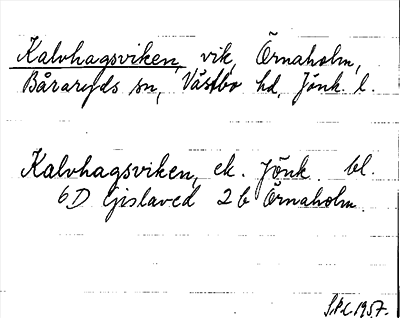 Kalvhagsviken, vik, Örnaholm,
Båraryds sn, Västbo hd, Jönk. l.
Kalvhagsviken, ek. Jönk. bl.
6D Gislaved 2b Örnaholm.
S.P.L. 1957.